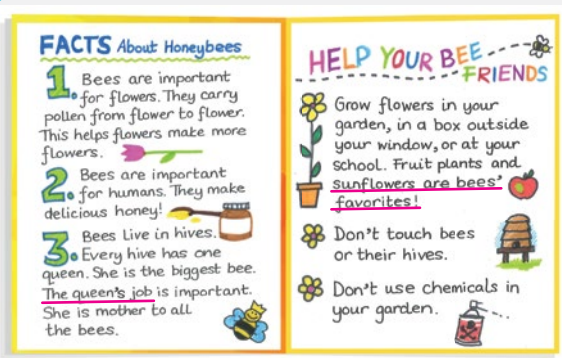 FACTS About Honeybees
1. Bees are important
for flowers. They carry
pollen from flower to flower.
This helps flowers make more
flowers.
2. Bees are important
for humans. They make
delicious honey!
3. Bees live in hives.
Every hive has one
queen. She is the biggest bee.
The queen's job is important.
She is mother to all
the bees.
HELP YOUR BEE
FRIENDS
Grow flowers in your
garden, in a box outside
your window, or at your
school. Fruit plants and
sunflowers are bees'
favorites!
Don't touch bees
or their hives.
Don't use chemicals in
your garden.